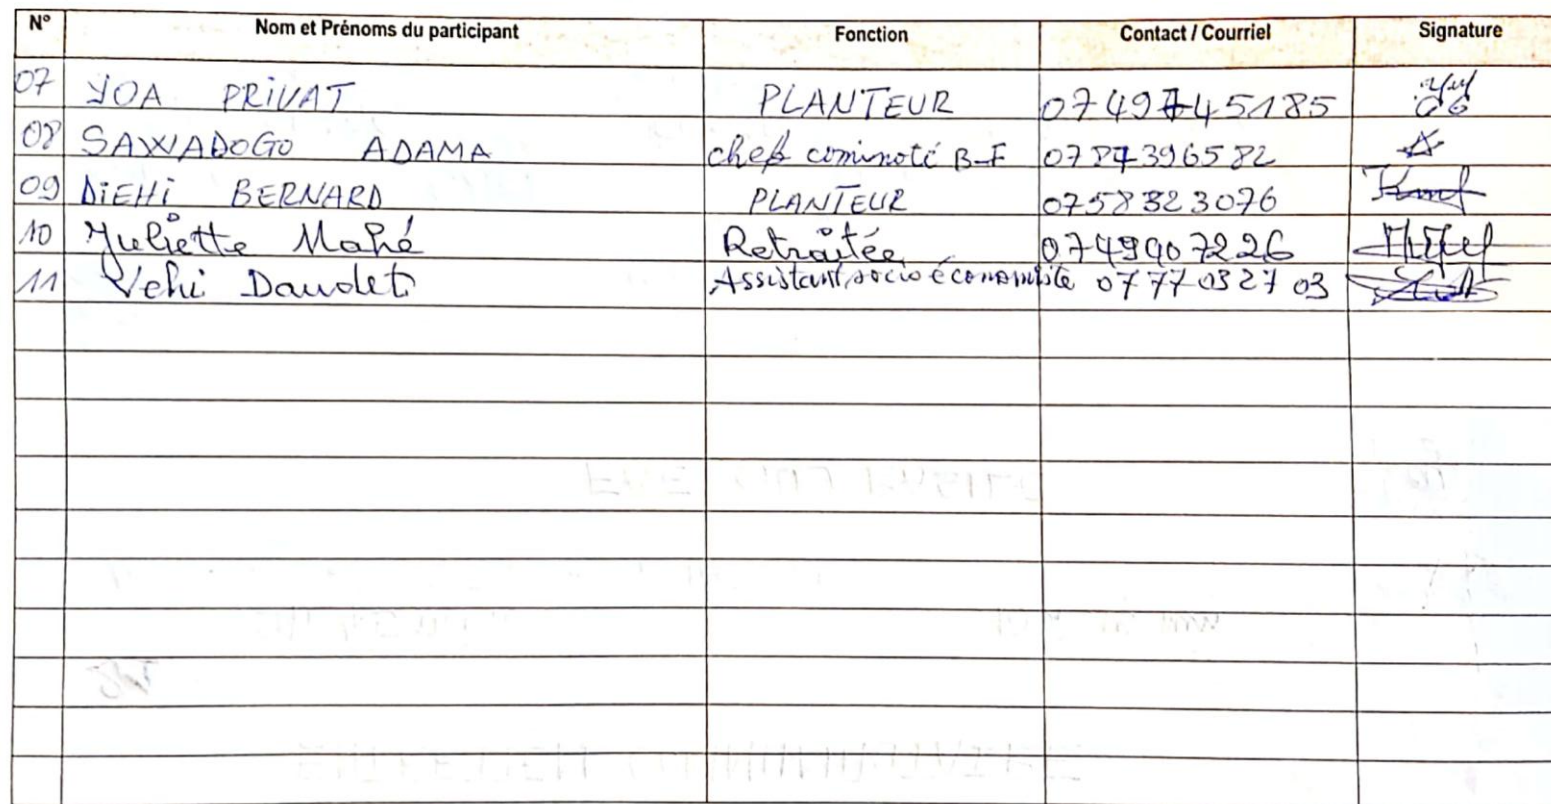 N° Nom et Prénoms du participant Fonction Contact / Courriel Signature
07 YOA PRIVAT PLANTEUR 0749745185
08 SAWADOGO ADAMA chef cominoté B-F 0787396582
09 DIEHI BERNARD PLANTEUR 0758323076
10 Juliette Mahé Retraitée 0749907226
11 Vehi Daudet Assistant socio économiste 0777032703